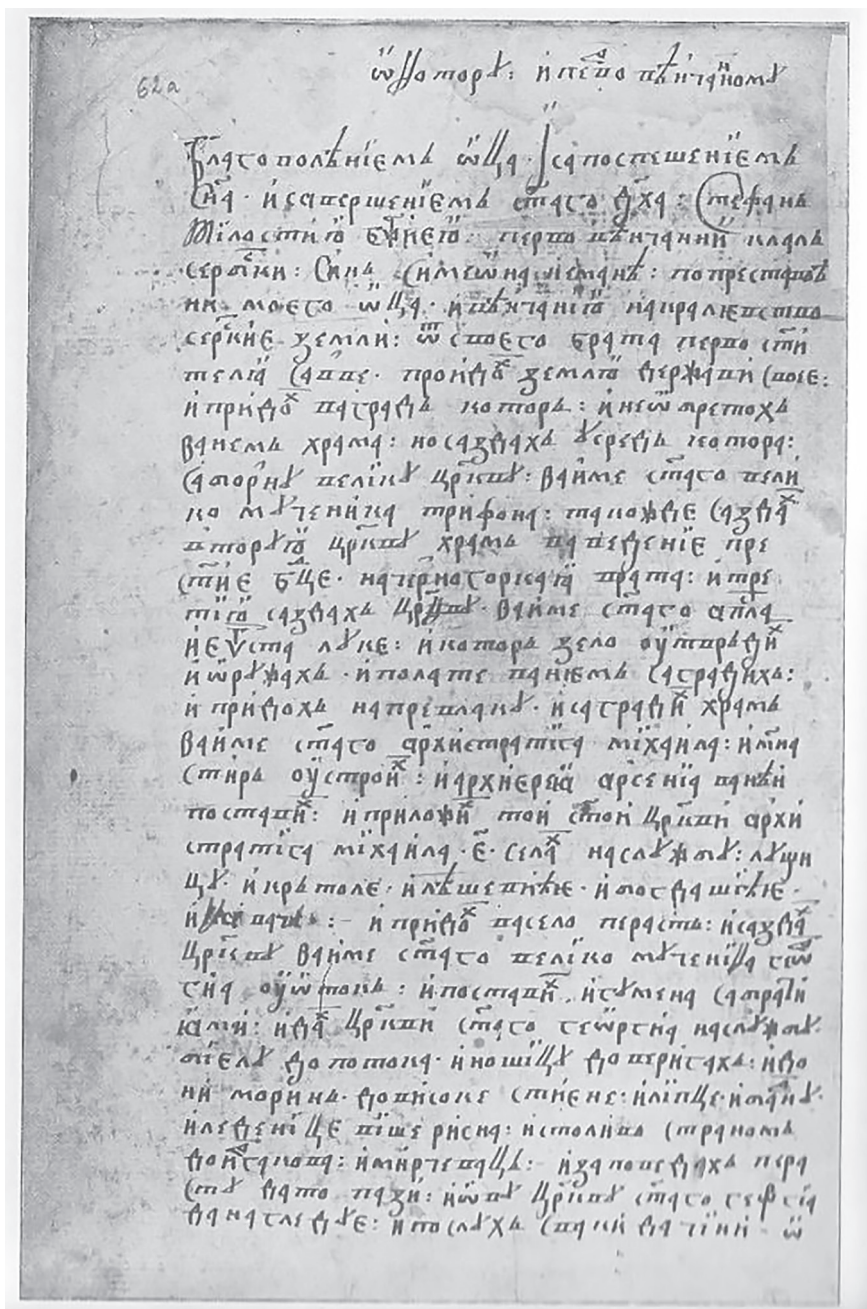 62а
ѿ Которꙋ: и пе҃рво вѣнчаномꙋ
Благоволѣніемь ѿца · и сапоспешеніемь
Сн҃а · и савершеніемь ст҃аго дх҃а: Стефань
Мїлостию бж҃иею: перво вѣнчанни кралъ
серпски: Синь Симеѡна немане: по преставѣ
ни моего ѿца · и вѣнчанию на кралевство
серпкие земли: ѿ своего брата перво ст҃и
телꙗ Савве · проидох землю держави своее:
и придох ва градь которь: и не ѡбретохь
ва немь храма: но саздахь ꙋсредь котора:
саборнꙋ велікꙋ црк҃вꙋ: ва име ст҃аго вели
ко мꙋченика трифона: такожде саздах
вторꙋю црк҃вꙋ храмь ваведение пре
ст҃ие бц҃е · на чернагорскаꙗ врата: и тре
тїю саздахь црк҃вꙋ · ва име ст҃аго ап҃ла
и еѵ҃ста лꙋке: и которь зело оутврьдих
и ѡрꙋжахь · и полате ва нѥмь саградихь:
и придохь на превлакꙋ · и саградих храмь
ва име ст҃аго архистратига міхаила: и мна
стирь оустроих: и архиереꙗ арсениа ва нѣи
поставих: и приложих тои ст҃ои црк҃ви архи
стратига міхаила · е҃ · села на слꙋжбꙋ: лꙋщи
цꙋ · и кртоле · и лѣшевиѥ · и богдашиѥ ·
и придох ва село перасть: и сазда
црк҃вꙋ ва име ст҃аго велико мꙋченица геѡ
гиа оу ѡтокь: и поставих игꙋмена са брати
ꙗми: и дах црк҃ви ст҃аго геѡргиа на слꙋжбꙋ
биелꙋ до потока · и ношіцꙋ до веригахь: и до
ни моринь · до високе стиене: и ліпце · и банꙋ
и леденіце више рисна: и столивь страномь
до ископа: и мирчевацъ: и заповедахь пера
стꙋ да го пази: и ѡвꙋ црк҃вꙋ ст҃аго геѡргіа
да нагледꙋе: и послꙋхь сваки да чини ѿ